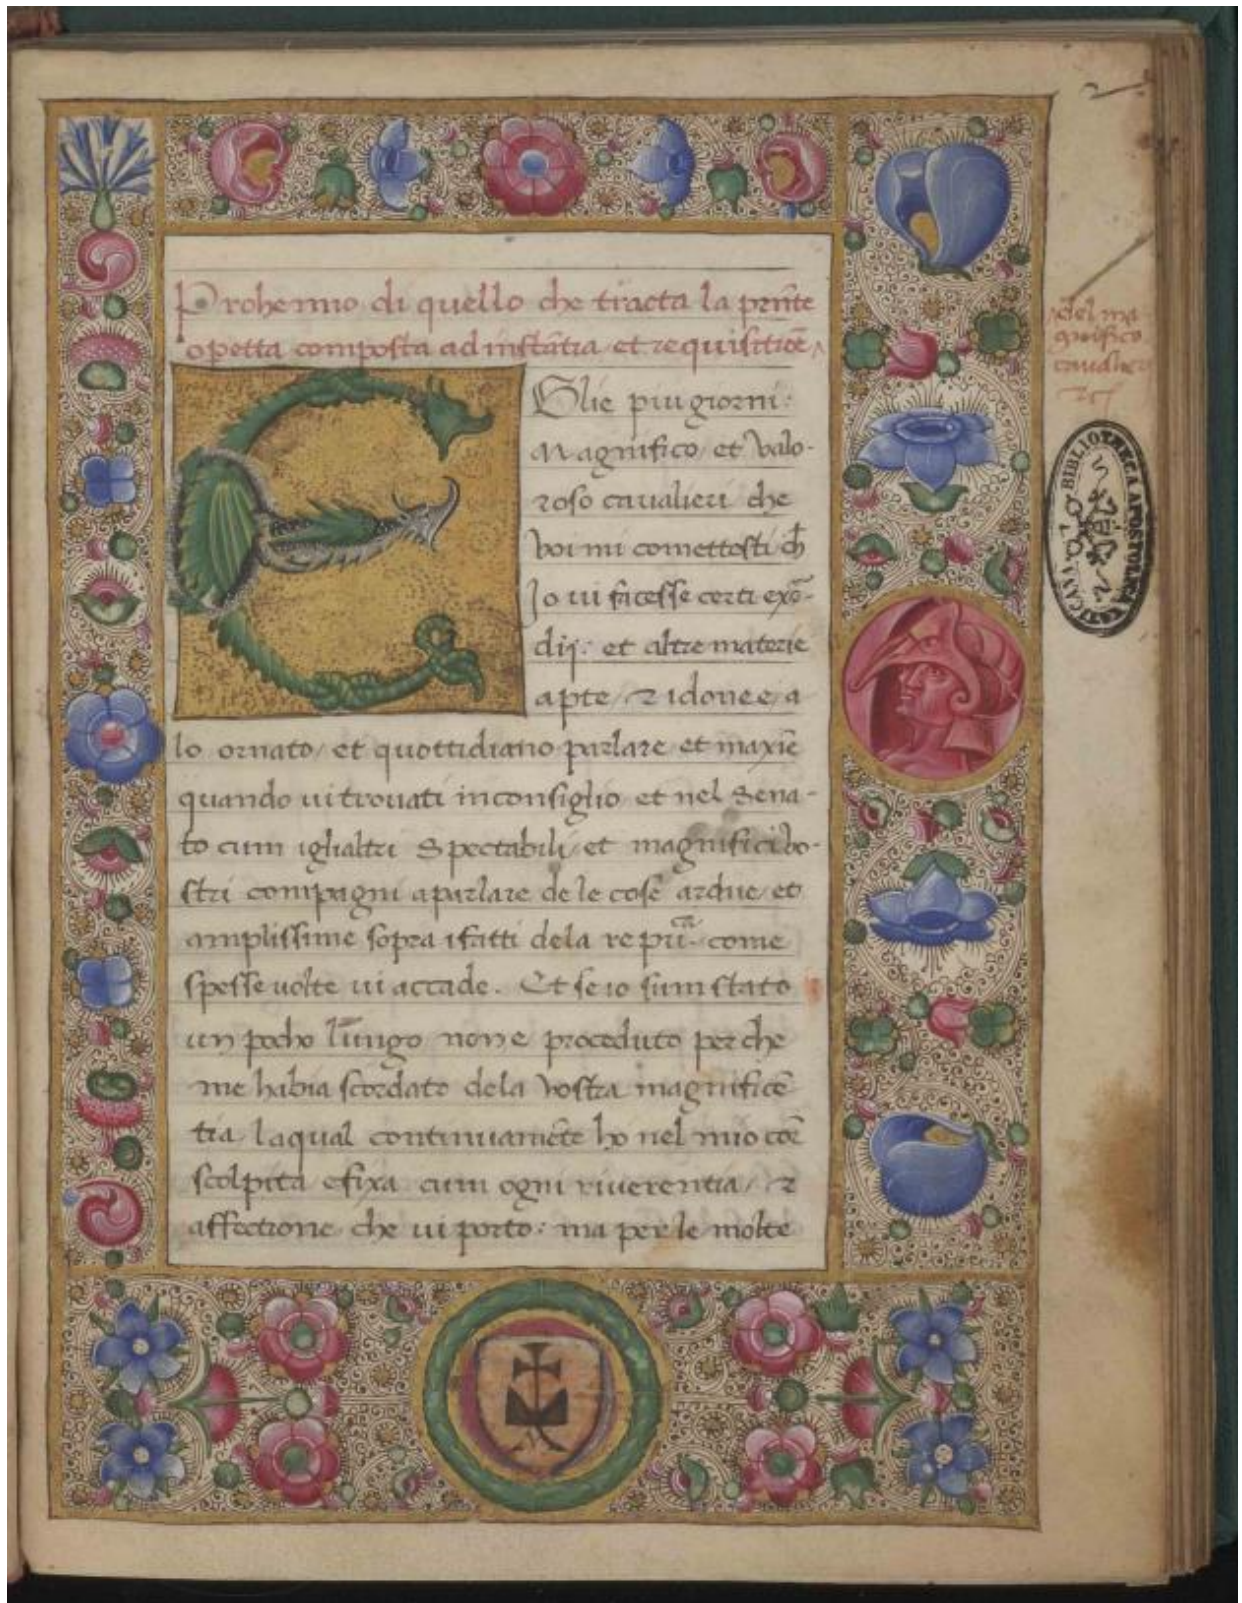 Prohemio di quello che tracta la pnte
opetta composta ad instātia et requisitiōe
del ma
gnifico
cavalier
EGlie piu giorni:
Magnifico et valo-
roso cavalieri che
voi mi comettesti ch
Io vi facesse certi exor-
dij: et altre materie
apte / z idonee / a
lo ornato / et quottidiano parlare et maxīe
quando vi trovati in consiglio et nel Sena-
to cum ighaltri Spectabili / et magnifici vo-
stri compagni a parlare de le cose ardue / et
amplissime sopra i fatti dela repu. come
spesse volte vi accade. Et se io sum stato
un pocho lungo non e proceduto per che
me habia scordato dela vostra magnificē
tia laqual continuamēte ho nel mio core
scolpita e fixa cum ogni riverentia / z
affectione che vi porto: ma per le molte
BIBLIOTHECA APOSTOLICA VATICANA